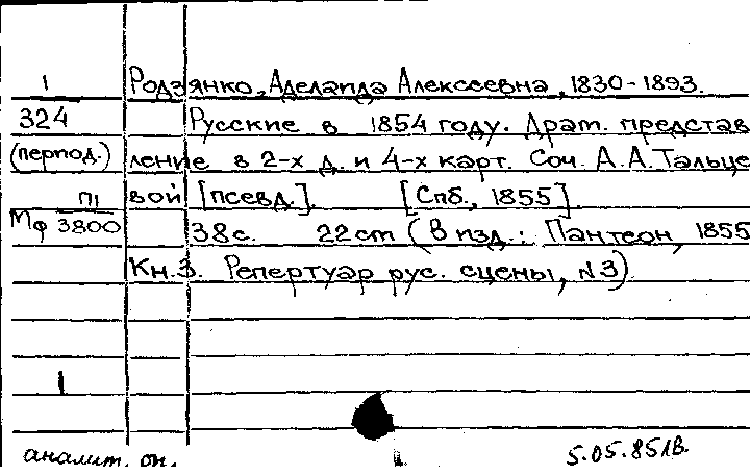 1 Родзянко, Аделаида Алексеевна, 1830-1893.
324 Русские в 1854 году. Драт. представ
(период.) ление в 2-х д. и 4-х карт. Соч. А.А. Тальце
П1 вой [псевд.]. [Спб., 1855].
Мф 3800 38с. 22см (В изд.: Пантеон, 1855
Кн.3. Репертуар рус. сцены, №3)
1
аналит. оп.
5.05.85